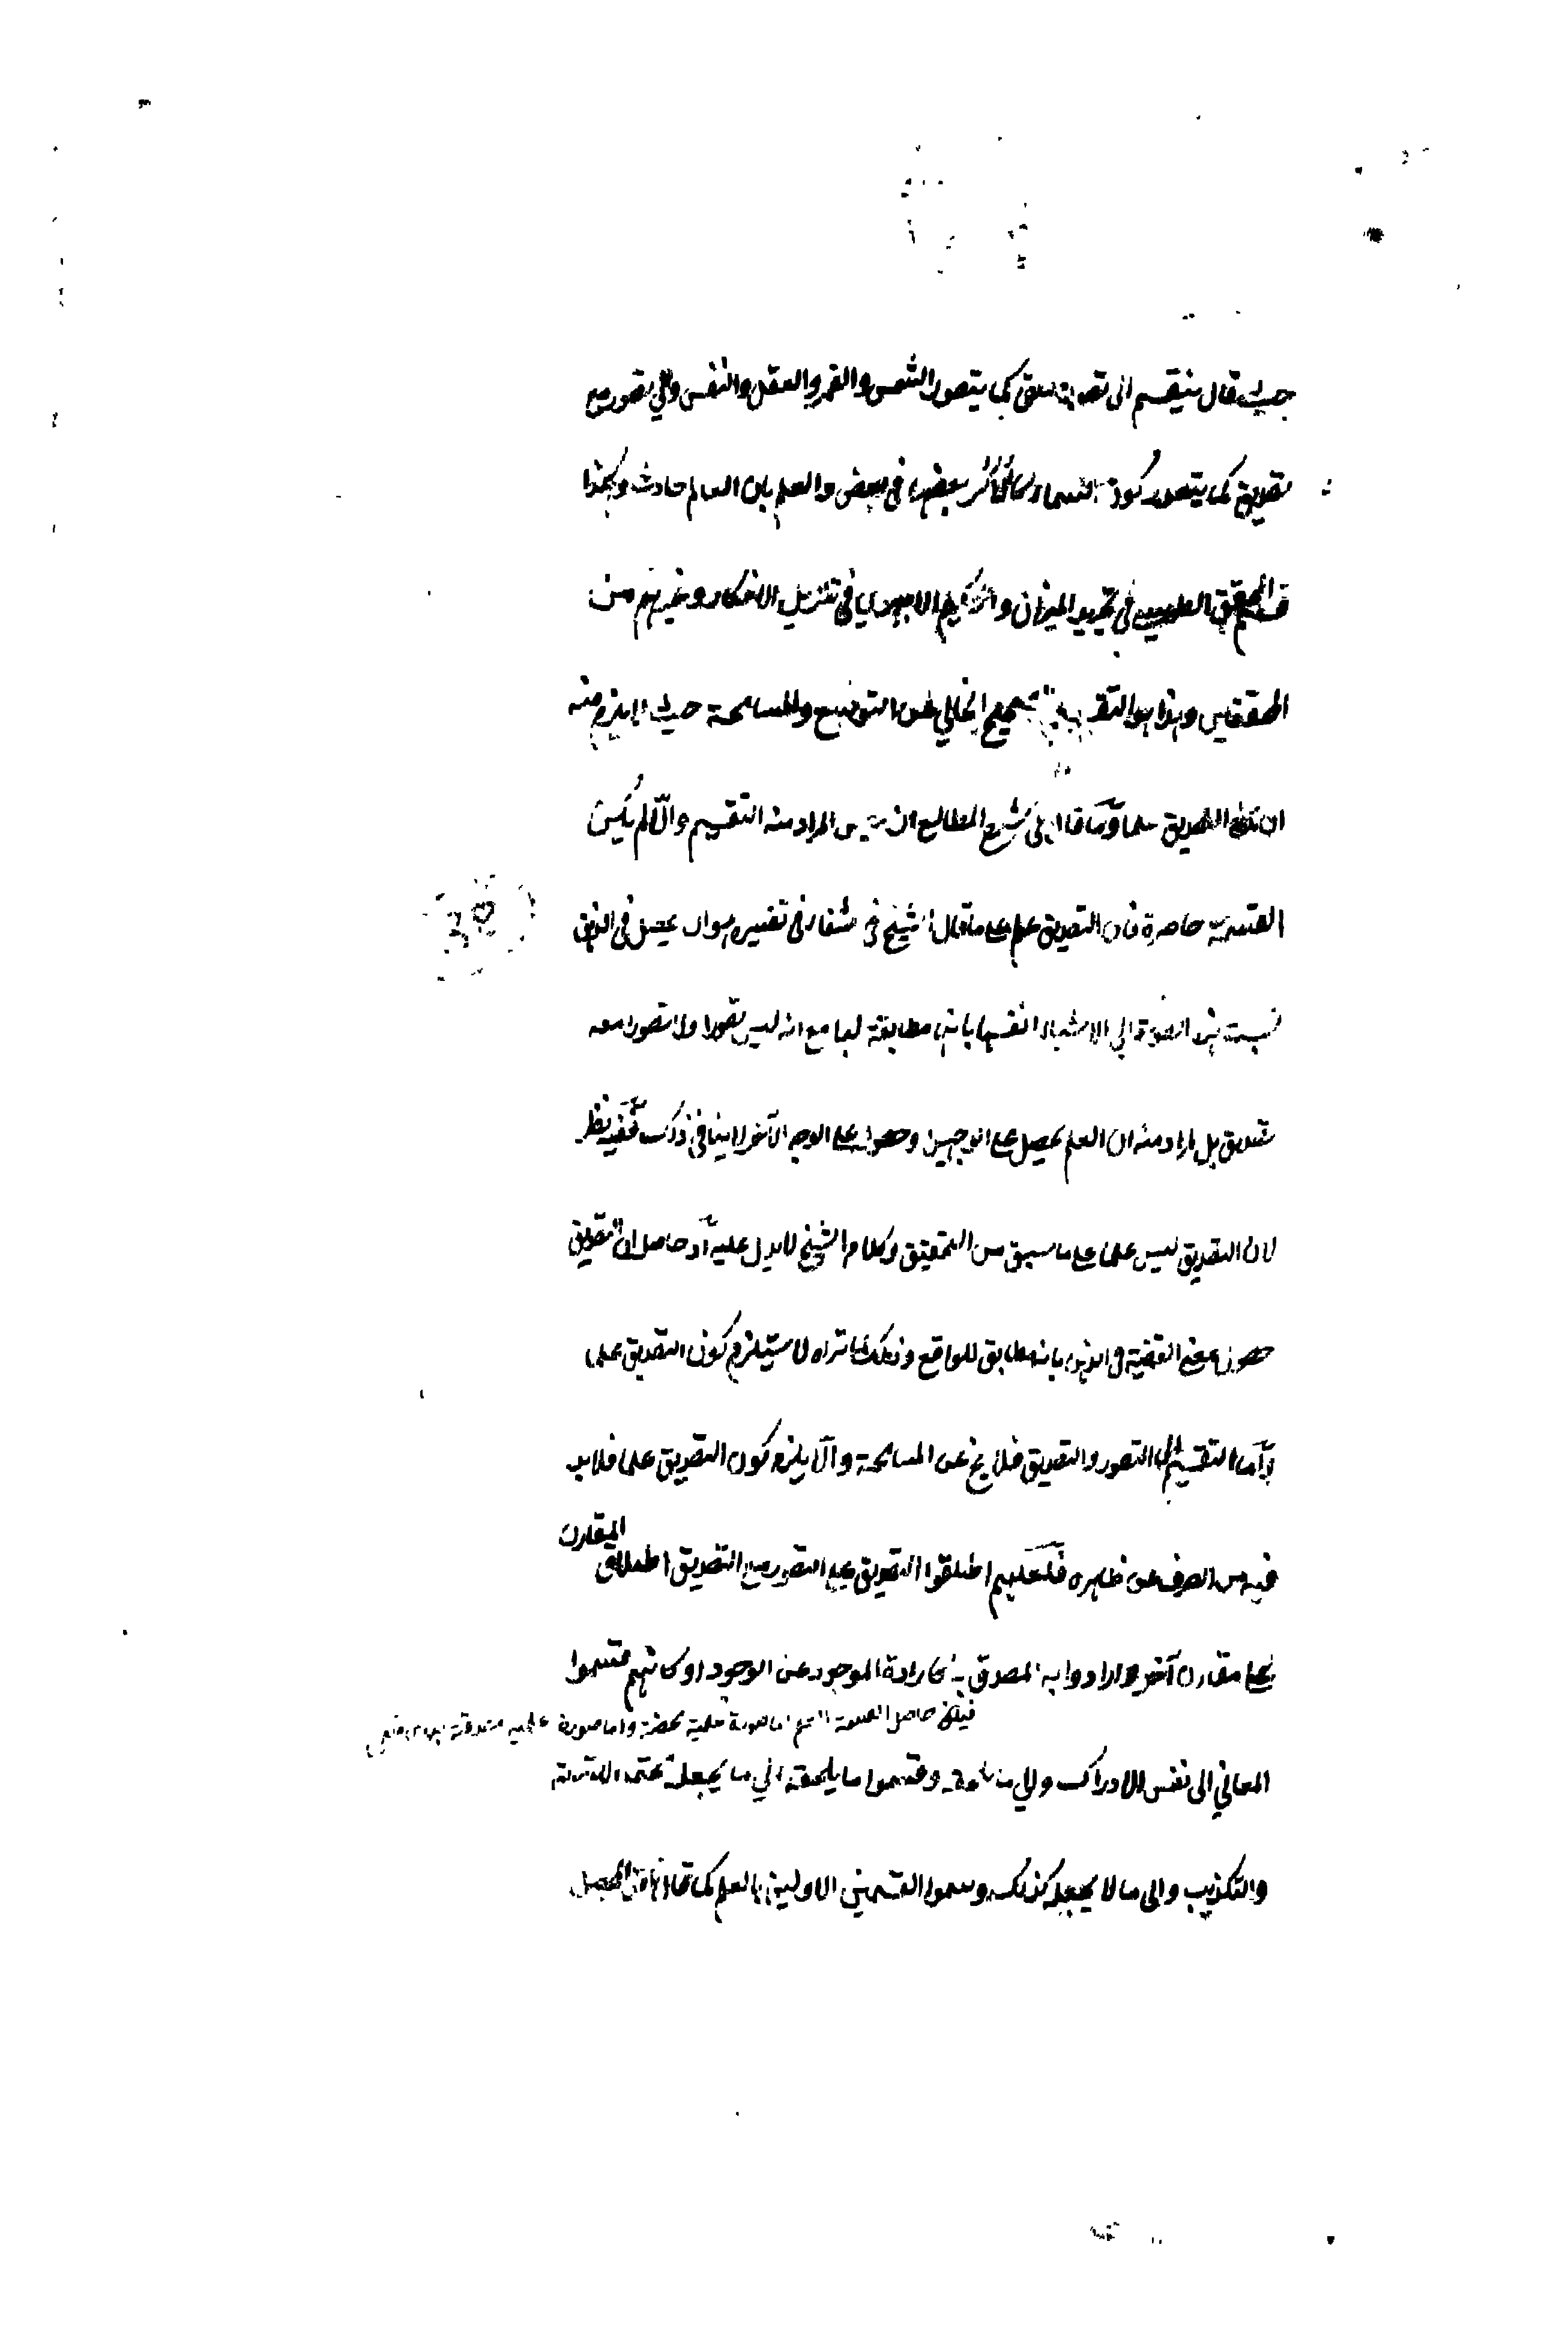 حيث قال ينقسم الى تصور مطلق كما يتصور الشمس والقمر والعقل والنفس والى تصور مع
تصديق كما يتصور كون السماء كالأكر بعضها في بعض والعلم بان العالم حادث وهكذا
قسم المحقق الطوسي في تجريد الميزان والحكيم الابهري في تنزيل الافكار وغيرهم من
المحققين وهذا هو التقسيم الصحيح الخالي عن التوسع والمسامحة حيث لا يلزم منه
ان يكون التصديق علما وما قال في شرح المطالع ان ليس المراد منه التقسيم والا لم يكن
القسمة حاصرة فان التصديق علم على ما قال الشيخ في الشفاء في تفسيره هو ان يحصل في الذهن
نسبة هذه الصورة الى الاشياء انفسها بانها مطابقة لها مع انه ليس تصورا ولا تصورا معه
تصديق بل المراد منه ان العلم يحصل على الوجهين وحصوله على الوجه الآخر لا ينافي ذلك ففيه نظر
لان التصديق ليس علما على ما سبق من التحقيق وكلام الشيخ لا يدل عليه اذ حاصله ان التصديق
حصول معنى القضية في الذهن بانه مطابق للواقع وذلك كما تراه لا يستلزم كون التصديق علما
واما التقسيم الى التصور والتصديق فلا يخ عن المسامحة والا يلزم كون التصديق علما فلا بد
فيه من الصرف عن ظاهره فلعلهم اطلقوا التصديق على التصور مع التصديق اطلاق المقارن
على مقارن آخر وارادوا به المصدق به كارادة الموجود من الوجود او كانهم قسموا
فيكون حاصل القسمة العلم اما صورة علمية محضة واما صورة علمية
المعاني الى نفس الادراك والى ما يلحقه وقسموا ما يلحقه الى ما يجعله محتملا
والتكذيب والى ما لا يجعله كذلك وسموا القسمين الاولين بالعلم كما قال